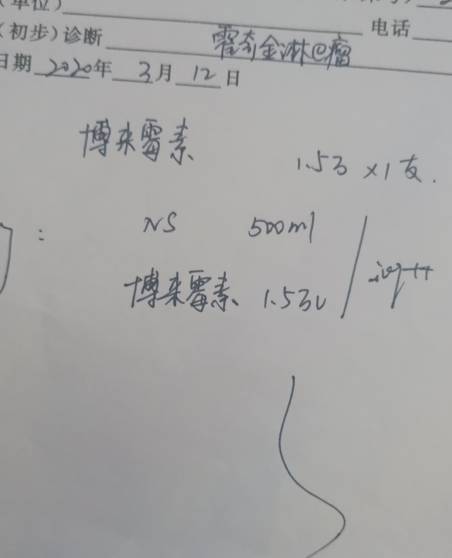 (单位)
(初步)诊断 霍奇金淋@瘤 电话
日期 2020年 3月 12日
博来霉素 1.5万 ×1支.
: NS 500ml
博来霉素 1.5万u ivgtt